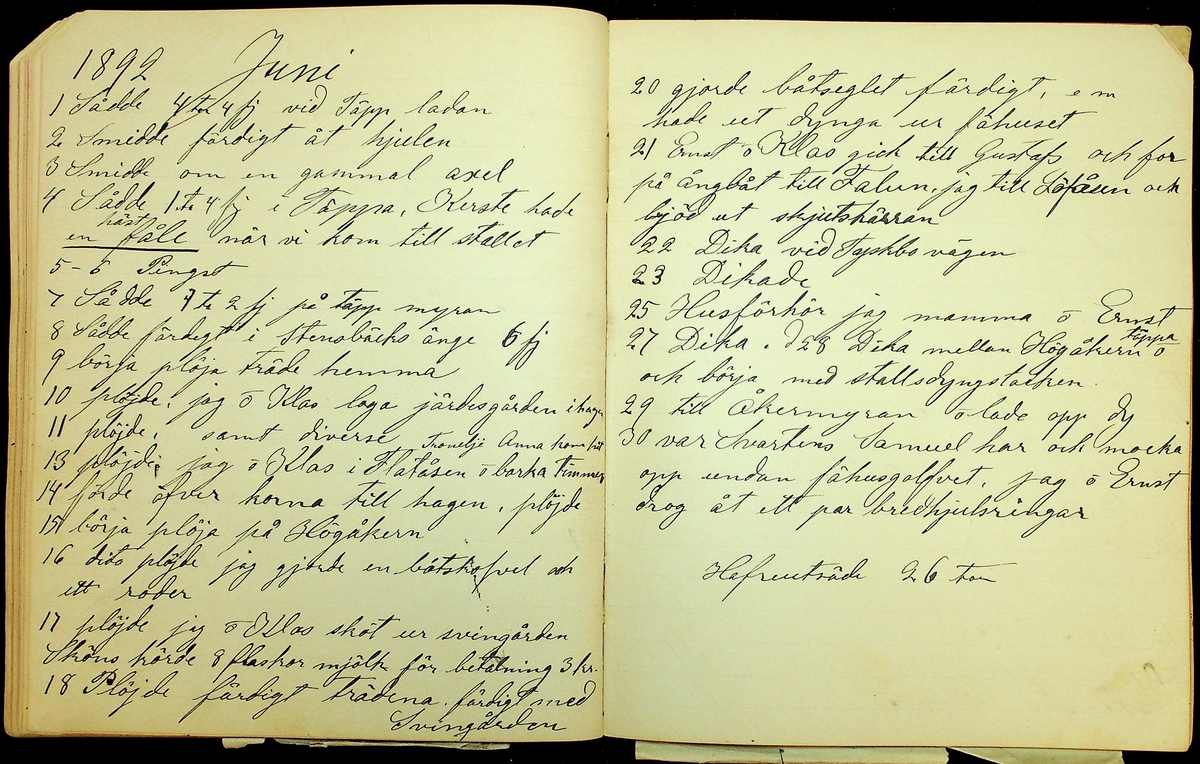 1892 Juni
1 Sådde 4 tn 4 fj vid Täpp ladan
2 Smidde färdigt åt hjulen
3 Smidde om en gammal axel
4 Sådde 1 tn 4 fj i Täppa, Kerste hade
häst
en fåle när vi kom till stallet
5-6 Pingst
7 Sådde 1 tn 2 fj på täpp myran
8 Sådde färdigt i Stensbäcks änge 6 fj
9 börja plöja träde hemma
10 plöjde, jag o Klas laga järdesgården i hagen
11 plöjde, samt diverse
Anna kom hit
13 plöjde, jag o Klas i o barka timmer
14 förde öfver korna till hagen, plöjde
15 börja plöja på Högåkern
16 dito plöjde jag gjorde en båtskofvel och
ett roder
17 plöjde jag o Klas sköt ur svingården
Sköns körde 8 flaskor mjölk för betalning 3 kr.
18 Plöjde färdigt trädena. färdigt med
Svingården
20 gjorde båtseglet färdigt, e m
hade ut dynga ur fähuset
21 Ernst o Klas gick till Gustafs och for
på ångbåt till Falun, jag till Löfåsen och
bjöd ut skjutskärran
22 Dika vid Tyskbo vägen
23 Dikade
25 Husförhör jag mamma o Ernst
täppa
27 Dika. d 28 Dika mellan Högåkern o
och börja med stallsdyngstacken.
29 till Åkermyran o lade opp dy
30 var Mårtens Samuel har och mocka
opp undan fähusgolfvet, jag o Ernst
drog åt ett par bredhjulsringar
Hafreutsäde 26 tn